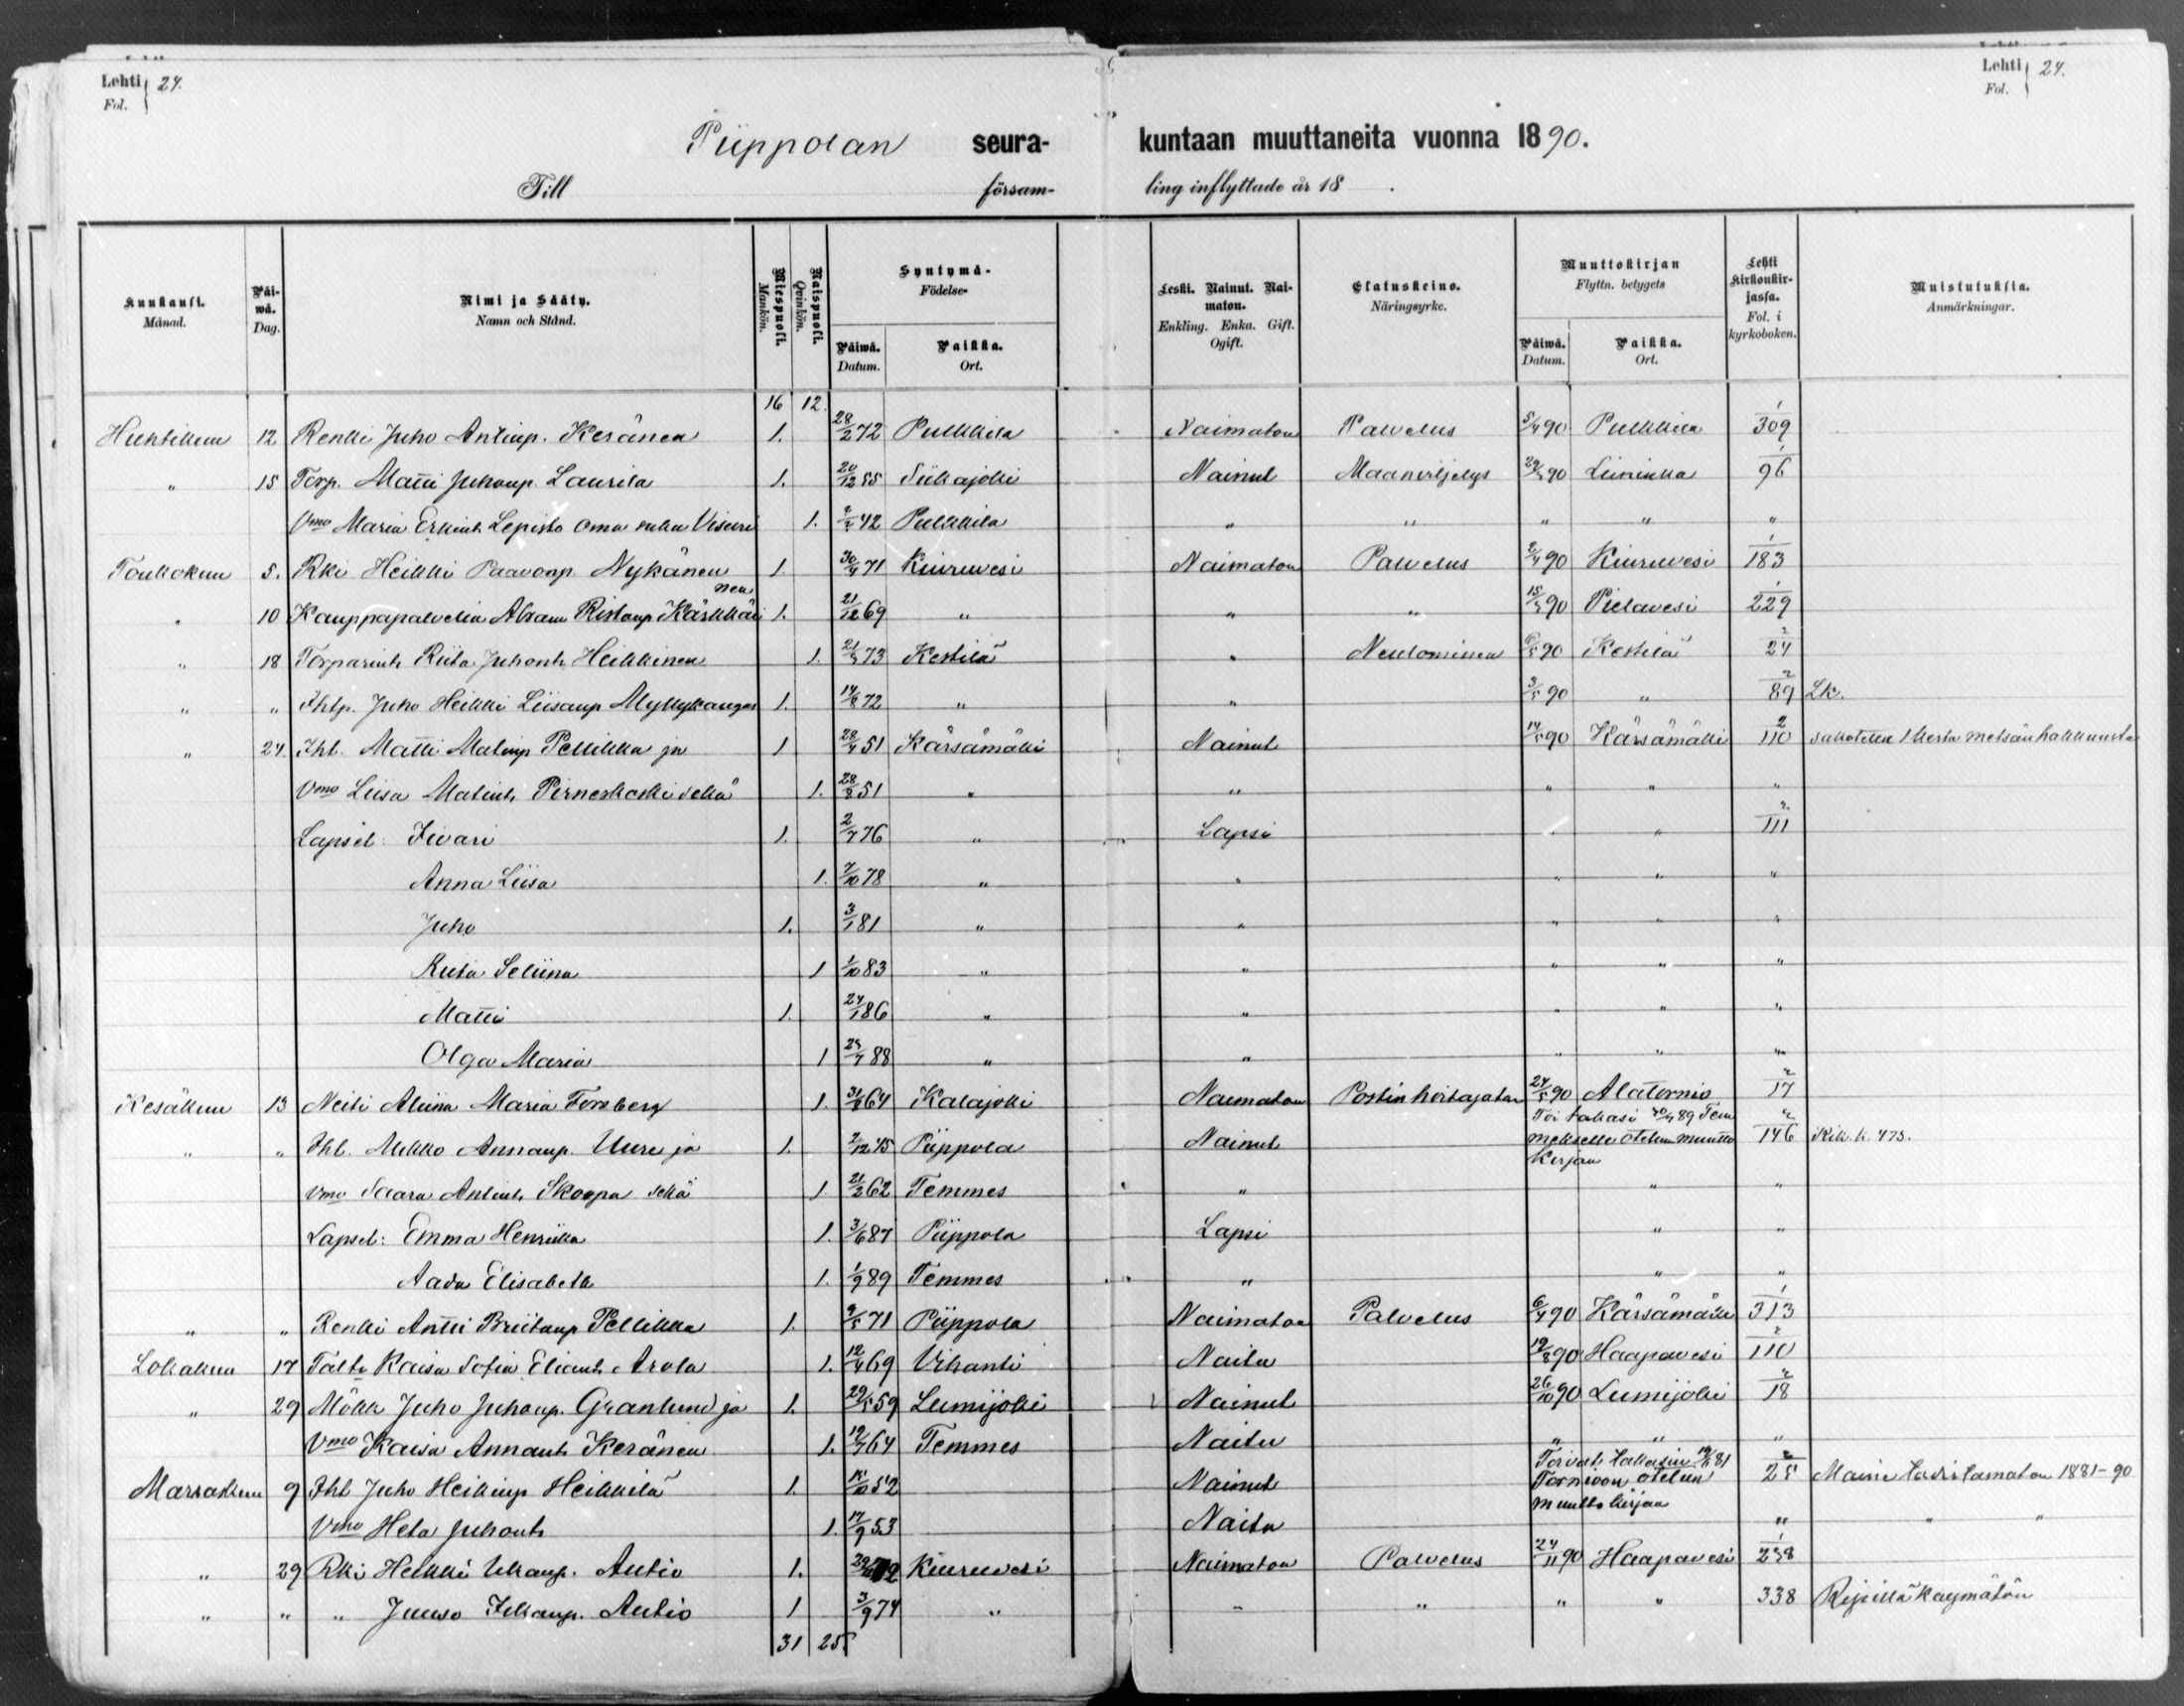 Lehti 24.
Fol.
Lehti 24.
Fol.
Piippolan seura- kuntaan muuttaneita vuonna 1890.
Till församling inflyttade år 18 .
Kuukausi. Månad.
Päiwä. Dag.
Nimi ja Sääty. Namn och Stånd.
Miespuoli. Mankön.
Naispuoli. Qvinkön.
Syntymä- Födelse-
Päiwä. Datum.
Paikka. Ort.
Leski. Nainut. Naimaton. Enkling. Enka. Gift. Ogift.
Elatuskeino. Näringsyrke.
Muuttokirjan Flyttn. betygets
Päiwä. Datum.
Paikka. Ort.
Lehti kirkonkirjassa. Fol. i kyrkoboken.
Muistutuksia. Anmärkningar.
16 12.
Huhtikuu 12 Renki Juho Antinp. Keränen 1. 28/2 72 Pulkkila Naimaton Palvelus 5/4 90 Pulkkila 1/309
" 15 Torp. Matti Juhonp. Laurila 1. 20/12 55 Siikajoki Nainut Maanviljelys 90 Liminka 1/96
Vmo Maria Erkint. Lepisto oma suku Visuri 1. 42 Pulkkila " " " " "
Toukokuu 5. Rki Heikki Paavonp. Nykänen 1. 30/4 71 Kiuruvesi Naimaton Palvelus 2/4 90 Kiuruvesi 1/183
" 10 Kauppapalvelia Abram Ristonp Kärkkäinen 1. 21/12 69 " " " 90 Pielavesi 1/229
" 18 Torparint. Riita Juhont. Heikkinen 1. 73 Kestilä " Neulominen 90 Kestilä 2/24
" " Ihtp. Juho Heikki Liisanp Myllykangas 1. 14/8 72 " " 3/5 90 " 2/89 Lk.
" 24. Ihl. Matti Matinp Pellikka ja 1 28/4 51 Kärsämäki Nainut 14/5 90 Kärsämäki 2/110 sakotettu 1 kerta metsänhakkuusta
Vmo Liisa Matint. Pirneskoski sekä 1. 28/8 51 " " " " "
Lapset: Iivari 1. 2/7 76 " Lapsi " " 2/111
Anna Liisa 1. 7/10 78 " " " " "
Juho 1. 3/1 81 " " " " "
Riita Seliina 1 1/10 83 " " " " "
Matti 1. 24/1 86 " " " " "
Olga Maria 1 88 " " " " "
Kesäkuu 13 Neiti Aliina Maria Forsberg 1. 64 Kalajoki Naimaton Postinhoitajatar 24/5 90 Alatornio 2/17
" " Ihl. Mikko Annanp. Uure ja 1. 2/12 45 Piippola Nainut Toi takasi 89 Temmekselle otetun muuttokirjan 2/146 Rik. k. 473.
Vmo Saara Antint. Skoopa sekä 1 21/2 62 Temmes " " "
Lapset: Emma Henriika 1. 3/6 87 Piippola Lapsi " "
Aada Elisabeth 1. 1/9 89 Temmes " " "
" " Renki Antti Briitanp Pellikka 1. 9/5 71 Piippola Naimaton Palvelus 6/4 90 Kärsämäki 1/313
Lokakuu 17 Talt. Kaisa Sofia Eliant. Arola 1. 12/4 69 Vihanti Naitu 90 Haapavesi 2/110
" 29 Mökk Juho Juhonp. Granlund ja 1. 29/5 59 Lumijoki Nainut 26/10 90 Lumijoki 2/18
Vmo Kaisa Annant. Keränen 1. 64 Temmes Naitu " " "
Marraskuu 9 Ihl Juho Heikinp Heikkilä 1. 15/10 52 Nainut Toivat takasin 81 Tornioon otetun muuttokirjan 2/25 Maine todistamaton 1881-90
Vmo Heta Juhont. 1. 17/9 53 Naitu " " "
" 29 Rki Heikki Iikanp. Autio 1. 72 Kiuruvesi Naimaton Palvelus 24/11 90 Haapavesi 1/258
" " " Juuso Iikanp. Autio 1 3/9 74 " " " " " 338 Ripillä käymätön
31 25